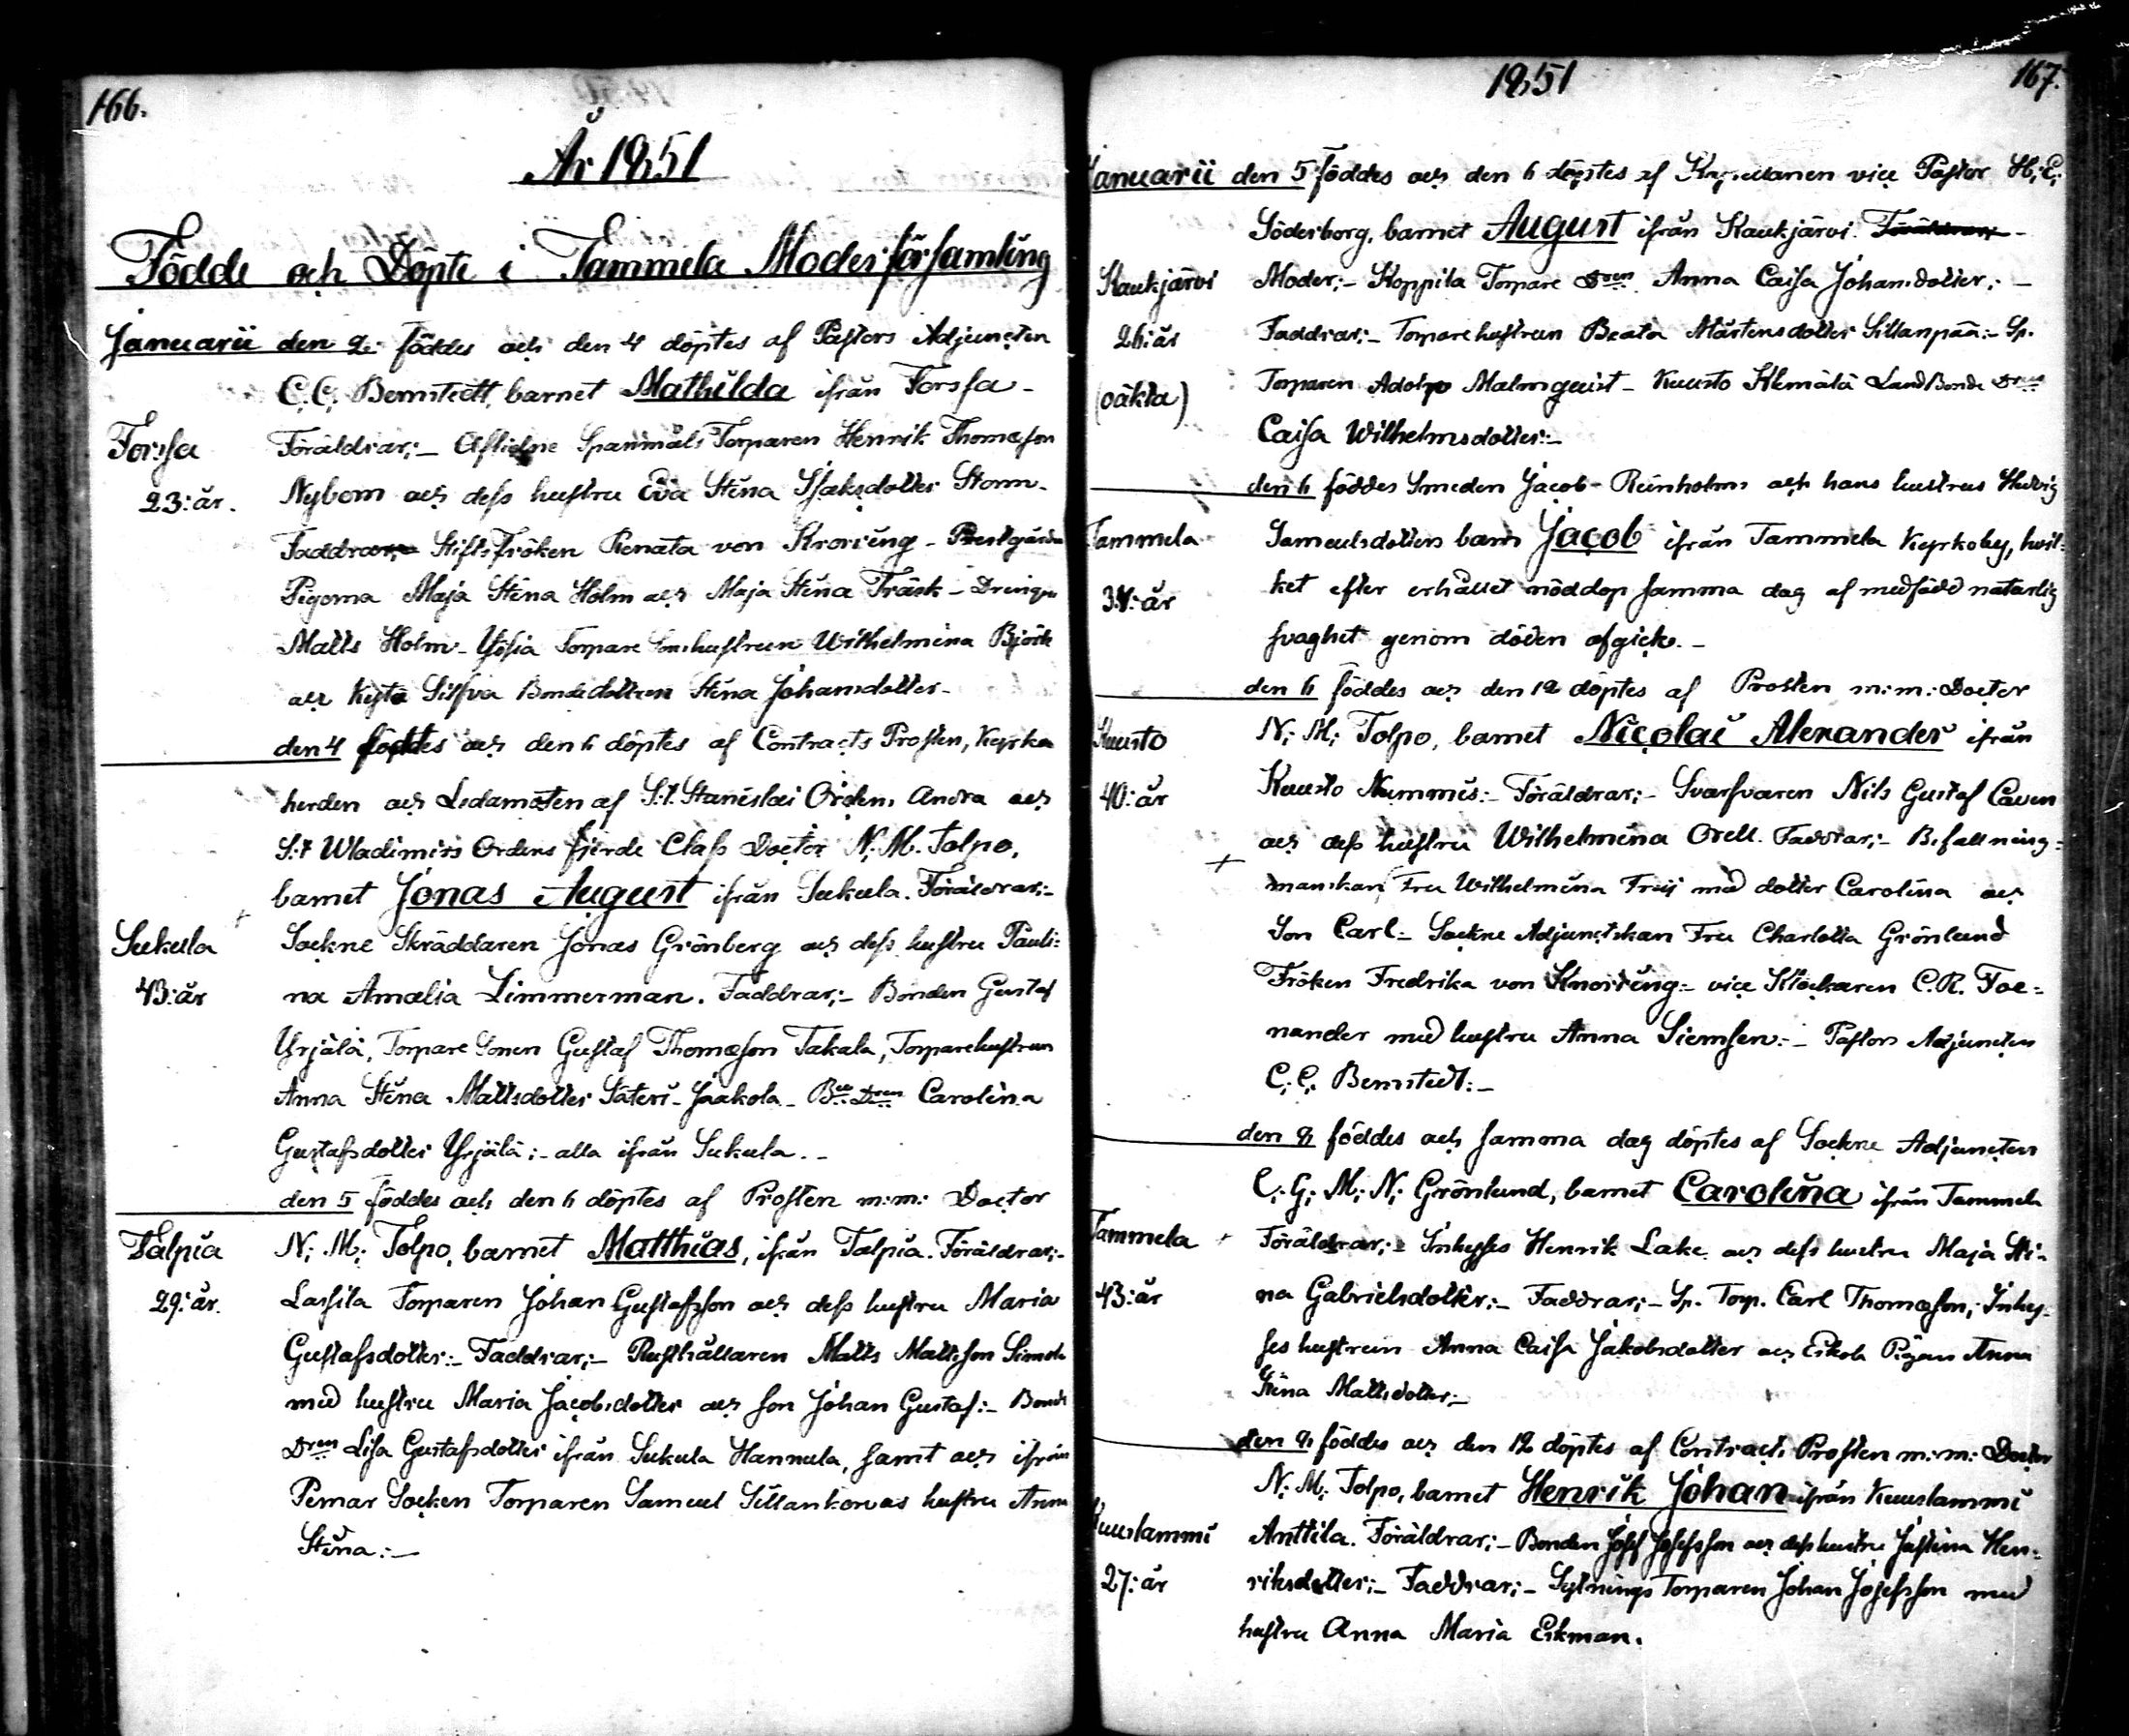 166.
År 1851
Födde och Döpte i Tammela Moderförsamling
Januarii den 2 föddes och den 4 döptes af Pastors Adjuncten
C. C. Bernstedt, barnet Mathilda ifrån Forssa
Forssa
23: år.
Föräldrar;- Aflidne Spanmåls Torparen Henrik Thomasson
Nybom och dess hustru Eva Stina Isaksdotter Storm.
Faddrar Stiftsfröken Renata von Knorring - Prestgårds
Pigorna Maja Stina Holm och Maja Stina Träsk - Drengen
Matts Holm - Torpare Sonhustrun Wilhelmina Björk
och Bondedottren Stina Johansdotter -
den 4 föddes och den 6 döptes af Contracts Prosten, Kyrko
herden och Ledamoten af S:t Stanislai Ordens Andra och
S:t Wladimirs Ordens fjerde Class Doctor N: M. Tolpo,
barnet Jonas August ifrån Sukula. Föräldrar;-
Sukula
43: år
Sockne Skräddaren Jonas Grönberg och dess hustru Pauli=
na Amalia Limmerman. Faddrar;- Bonden Gustaf
Yrjälä, Torpare Sonen Gustaf Thomasson Takala, Torparehustrun
Anna Stina Mattsdotter Säteri-Jaakola - Carolina
Gustafsdotter Yrjälä;- alla ifrån Sukula.-
den 5 föddes och den 6 döptes af Prosten m:m: Doctor
Talpia
29: år.
N: M: Tolpo, barnet Matthias, ifrån Talpia. Föräldrar;-
Lassila Torparen Johan Gustafsson och dess hustru Maria
Gustafsdotter:- Faddrar;- Rusthållaren Matts Mattsson Simola
med hustru Maria Jacobsdotter och son Johan Gustaf:- Bonde
Dren Lisa Gustafsdotter ifrån Sukula Hannula, samt och ifrån
Pemar Socken Torparen Samuel Sillankorvas hustru Anna
Stina:-
1851
167.
Januarii den 5 föddes och den 6 döptes af Kapellanen vice Pastor H: C:
Söderborg, barnet August ifrån Kaukjärvi. Föräldrar
Kaukjärvi
26: år
(oäkta)
Moder;- Koppila Torpare Dren Anna Caisa Johansdotter;-
Faddrar;- Torparehustrun Beata Mårtensdotter Sillanpää:- Sp.
Torparen Adolph Malmquist - Kuusto LandBonde Dren
Caisa Wilhelmsdotter:-
den 6 föddes Smeden Jacob Reinholms och hans hustrus Hedvig
Tammela
34: år
Samuelsdotters barn Jacob ifrån Tammela Kyrkoby, hvil=
ket efter erhållet nöddop samma dag af medfödd naturlig
svaghet genom döden afgick.-
den 6 föddes och den 12 döptes af Prosten m:m: Doctor
Kuusto
40: år
N: M: Tolpo, barnet Nicolai Alexander ifrån
Kuusto Nummis:- Föräldrar;- Svarfvaren Nils Gustaf Caven
och dess hustru Wilhelmina Orell. Faddrar;- Befallning=
manskan Fru Wilhelmina Frij med dotter Carolina och
Son Carl:- Sockne Adjunctskan Fru Charlotta Grönlund
Fröken Fredrika von Knorring:- vice Klockaren C. R. Foe=
nander med hustru Anna Siemsen:- Pastors Adjuncten
C: C: Bernstedt:-
den 9 föddes och samma dag döptes af Sockne Adjuncten
C: G: M: N: Grönlund, barnet Carolina ifrån Tammela
Tammela
43: år
Föräldrar;- Inhyses Henrik Lake och dess hustru Maja Sti=
na Gabrielsdotter;- Faddrar;- Sp. Torp. Carl Thomasson, Inhy=
ses hustrun Anna Caisa Jakobsdotter och Eskola Pigan Anna
Stina Mattsdotter;-
den 9 föddes och den 12 döptes af Contracts Prosten m:m: Doctor
N: M: Tolpo, barnet Henrik Johan ifrån Kuuslammi
Kuuslammi
27: år
Anttila. Föräldrar;- Bonden Josef Josefsson och dess hustru Justina Hen=
riksdotter;- Faddrar;- Sytnings Torparen Johan Josefsson med
hustru Anna Maria Ekman.